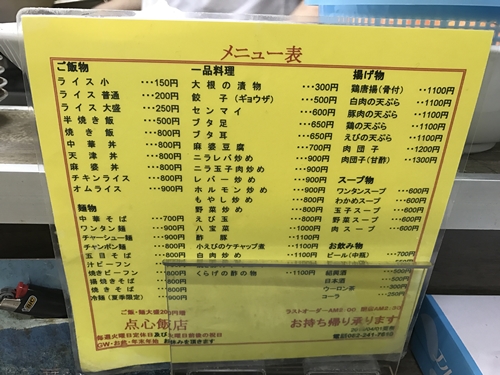 メニュー表
ご飯物
ライス 小 ・・・150円
ライス 普通 ・・・200円
ライス 大盛 ・・・250円
半焼き飯 ・・・500円
焼き飯 ・・・800円
中華丼 ・・・800円
天津丼 ・・・800円
麻婆丼 ・・・800円
チキンライス ・・・800円
オムライス ・・・900円
麺物
中華そば ・・・700円
ワンタン麺 ・・・900円
チャーシュー麺 ・・・900円
チャンポン麺 ・・・800円
五目そば ・・・800円
汁ビーフン ・・・800円
焼きビーフン ・・・800円
揚焼きそば ・・・800円
焼きそば ・・・800円
冷麺（夏季限定） ・・・900円
一品料理
大根の漬物 ・・・300円
餃子（ギョウザ） ・・・500円
センマイ ・・・600円
ブタ足 ・・・650円
ブタ耳 ・・・650円
麻婆豆腐 ・・・700円
ニラレバ炒め ・・・900円
ニラ玉子肉炒め ・・・900円
レバー炒め ・・・900円
ホルモン炒め ・・・900円
もやし炒め ・・・800円
野菜炒め ・・・800円
えび玉 ・・・900円
八宝菜 ・・・1000円
酢豚 ・・・1100円
小えびのケチャップ煮 ・・1100円
白肉炒め ・・・1100円
くらげの酢の物 ・・1100円
揚げ物
鶏唐揚（骨付） ・・1100円
白肉の天ぷら ・・・1100円
豚肉の天ぷら ・・・1100円
鶏の天ぷら ・・・1100円
えびの天ぷら ・・・1100円
肉団子 ・・・1200円
肉団子（甘酢） ・・1300円
スープ物
ワンタンスープ ・・・600円
わかめスープ ・・・600円
玉子スープ ・・・600円
野菜スープ ・・・600円
肉スープ ・・・600円
お飲み物
ビール（中瓶） ・・・700円
紹興酒 ・・・500円
日本酒 ・・・500円
ウーロン茶 ・・・300円
コーラ ・・・250円
ご飯・麺大盛200円増
点心飯店
毎週火曜日定休日及び火曜日前後の祝日
GW・お盆・年末年始 お休みを頂きます
ラストオーダーAM2:00 閉店AM2:30
お持ち帰り承ります